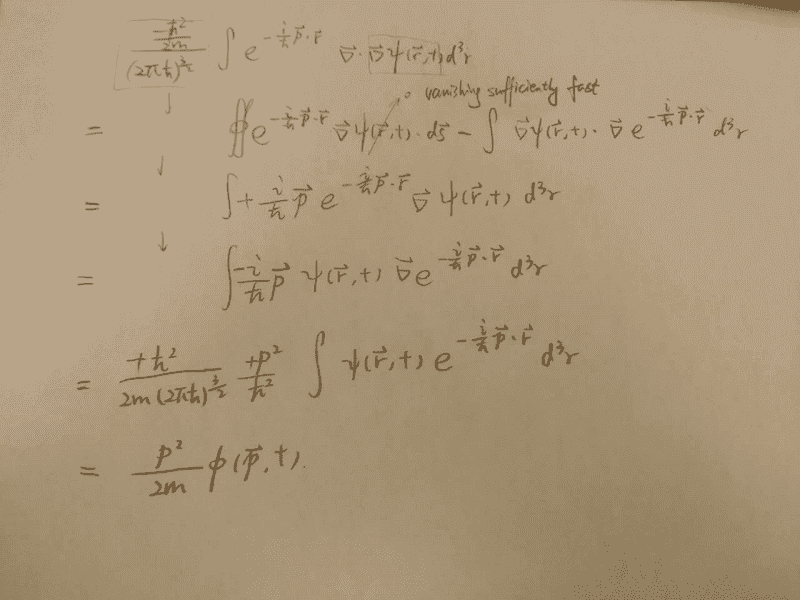 \frac{\frac{-\hbar^2}{2m}}{(2\pi\hbar)^{\frac{3}{2}}} \int e^{-\frac{i}{\hbar}\vec{p}\cdot\vec{r}} \vec{\nabla}\cdot\vec{\nabla}\psi(\vec{r},t) d^3r
→ 0 vanishing sufficiently fast
= ↓ \oiint e^{-\frac{i}{\hbar}\vec{p}\cdot\vec{r}} \vec{\nabla}\psi(\vec{r},t)\cdot d\vec{s} - \int \vec{\nabla}\psi(\vec{r},t)\cdot\vec{\nabla} e^{-\frac{i}{\hbar}\vec{p}\cdot\vec{r}} d^3r
= ↓ \int +\frac{i}{\hbar}\vec{p} e^{-\frac{i}{\hbar}\vec{p}\cdot\vec{r}} \vec{\nabla}\psi(\vec{r},t) d^3r
= ↓ \int -\frac{i}{\hbar}\vec{p} \psi(\vec{r},t) \vec{\nabla} e^{-\frac{i}{\hbar}\vec{p}\cdot\vec{r}} d^3r
= \frac{+\hbar^2}{2m(2\pi\hbar)^{\frac{3}{2}}} \frac{+p^2}{\hbar^2} \int \psi(\vec{r},t) e^{-\frac{i}{\hbar}\vec{p}\cdot\vec{r}} d^3r
= \frac{p^2}{2m} \phi(\vec{p},t).